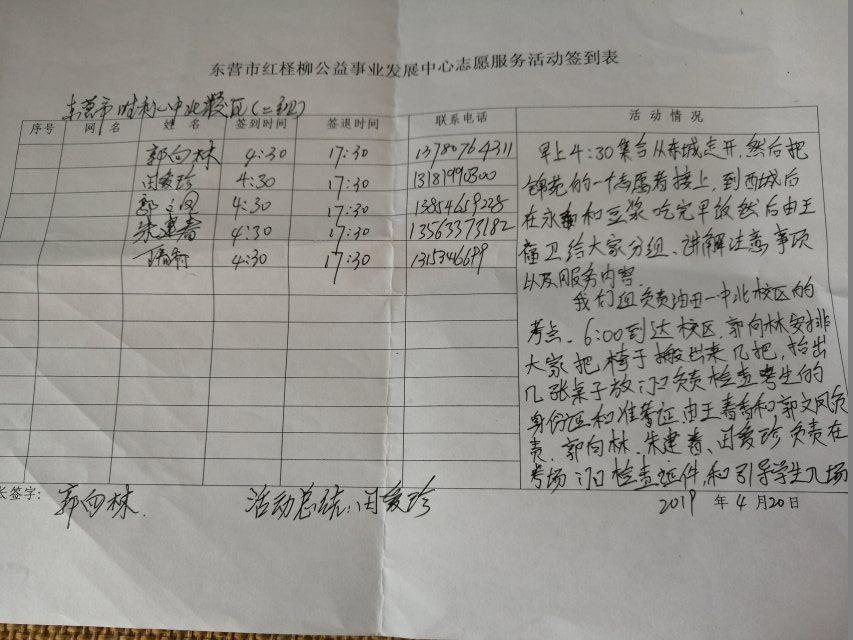 东营市红柽柳公益事业发展中心志愿服务活动签到表
东营市胜利一中北校区(二组)
序号 网名 姓名 签到时间 签退时间 联系电话 活动情况
郭向林 4:30 17:30 13780764311
田爱珍 4:30 17:30 13181990300
郭文凤 4:30 17:30 13854659228
朱建春 4:30 17:30 13563373182
4:30 17:30
早上4:30集合从东城走开,然后把
锦苑的一个志愿者接上,到西城后
在永和豆浆吃完早饭然后由王
卫给大家分组、讲解注意事项
以及服务内容.
我们组负责油田一中北校区的
考点、6:00到达校区,郭向林安排
大家把椅子搬出来几把,抬出
几张桌子放门口负责检查考生的
身份证和准考证,由王春香和郭文凤负
责、郭向林、朱建春、田爱珍,负责在
考场门口检查证件,和引导学生入场
长签字: 郭向林. 活动总结:田爱珍
2019 年 4 月 20 日